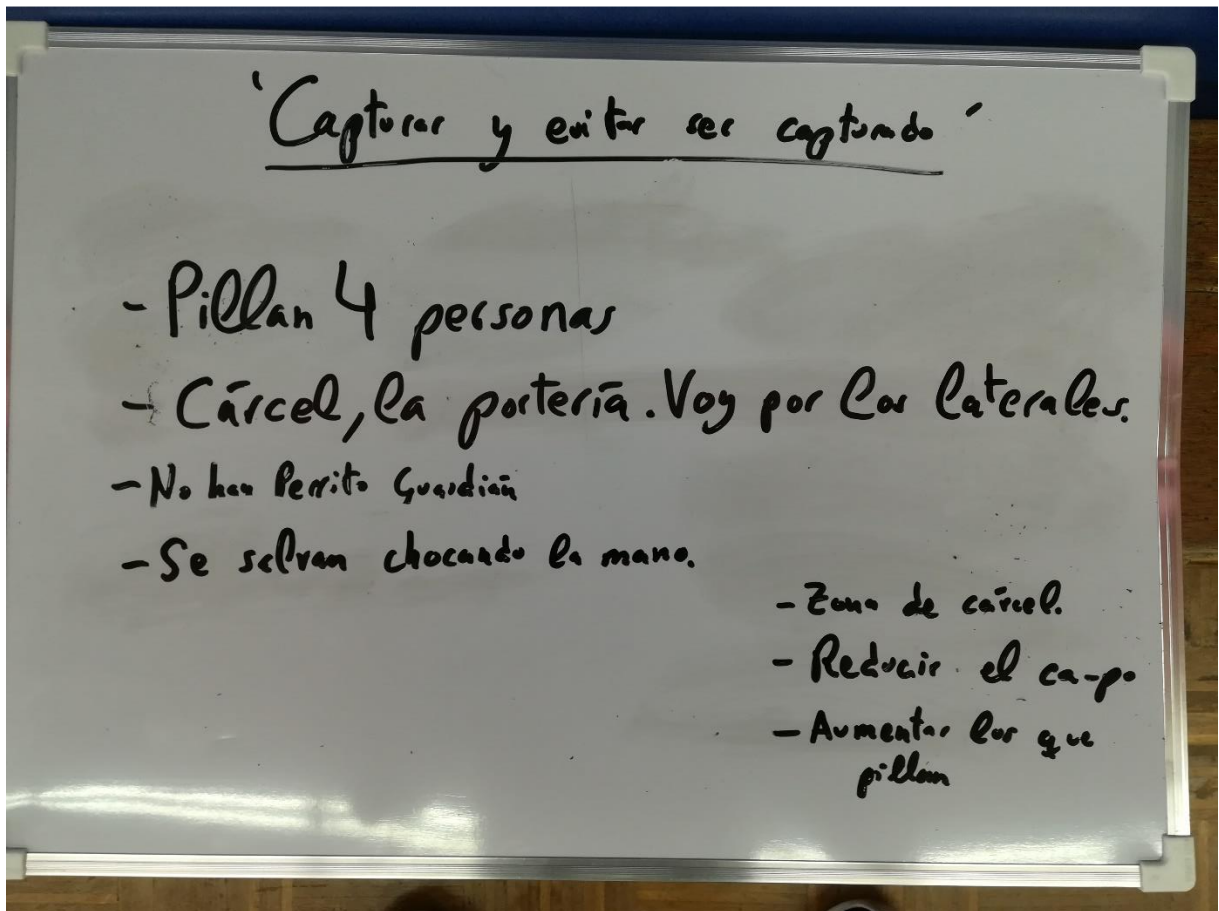 'Capturar y evitar ser capturado'
- Pillan 4 personas
- Cárcel, la portería. Voy por los laterales.
- No hay Perrito Guardián
- Se salvan chocando la mano.
- Zona de cárcel.
- Reducir el campo
- Aumentar los que
pillan